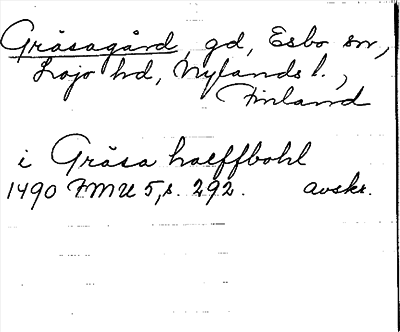 Gråsagård, gd, Esbo sn,
Lojo hd, Nylands l.,
Finland
i Gråsa haeffbohl
1490 FMU 5, s. 292. avskr.